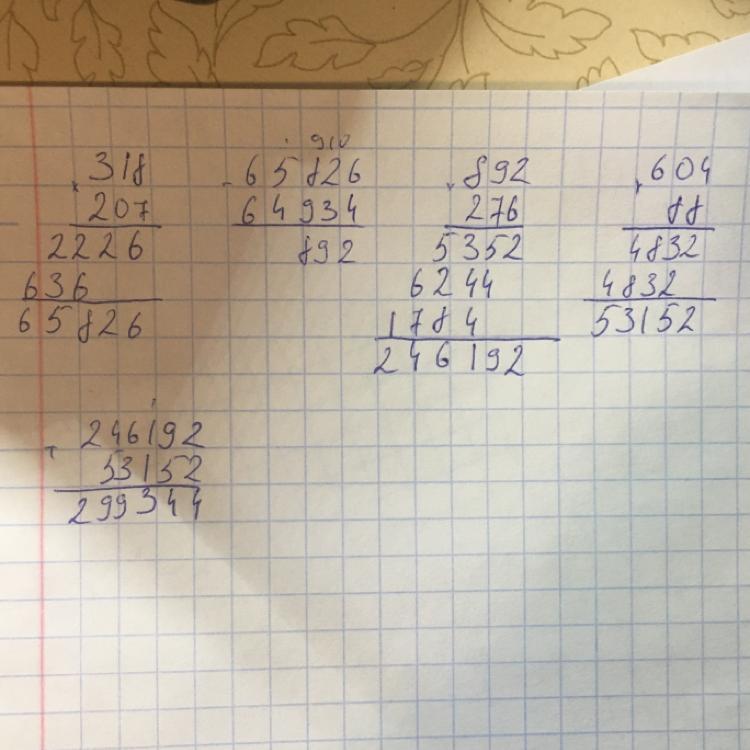 × 318
207
2226
636
65826
910
- 65826
64934
892
× 892
276
5352
6244
1784
246192
× 604
88
4832
4832
53152
1
+ 246192
53152
299344